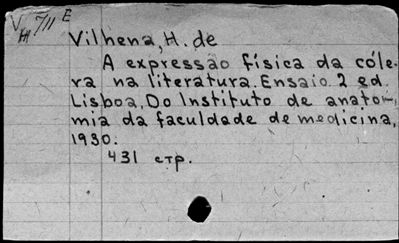 Vilhena, H. de
A expressão física da cóle-
ra na literatura. Ensaio 2 ed.
Lisboa, Do Instituto de anato-
mia da faculdade de medicina,
1930.
431 стр.